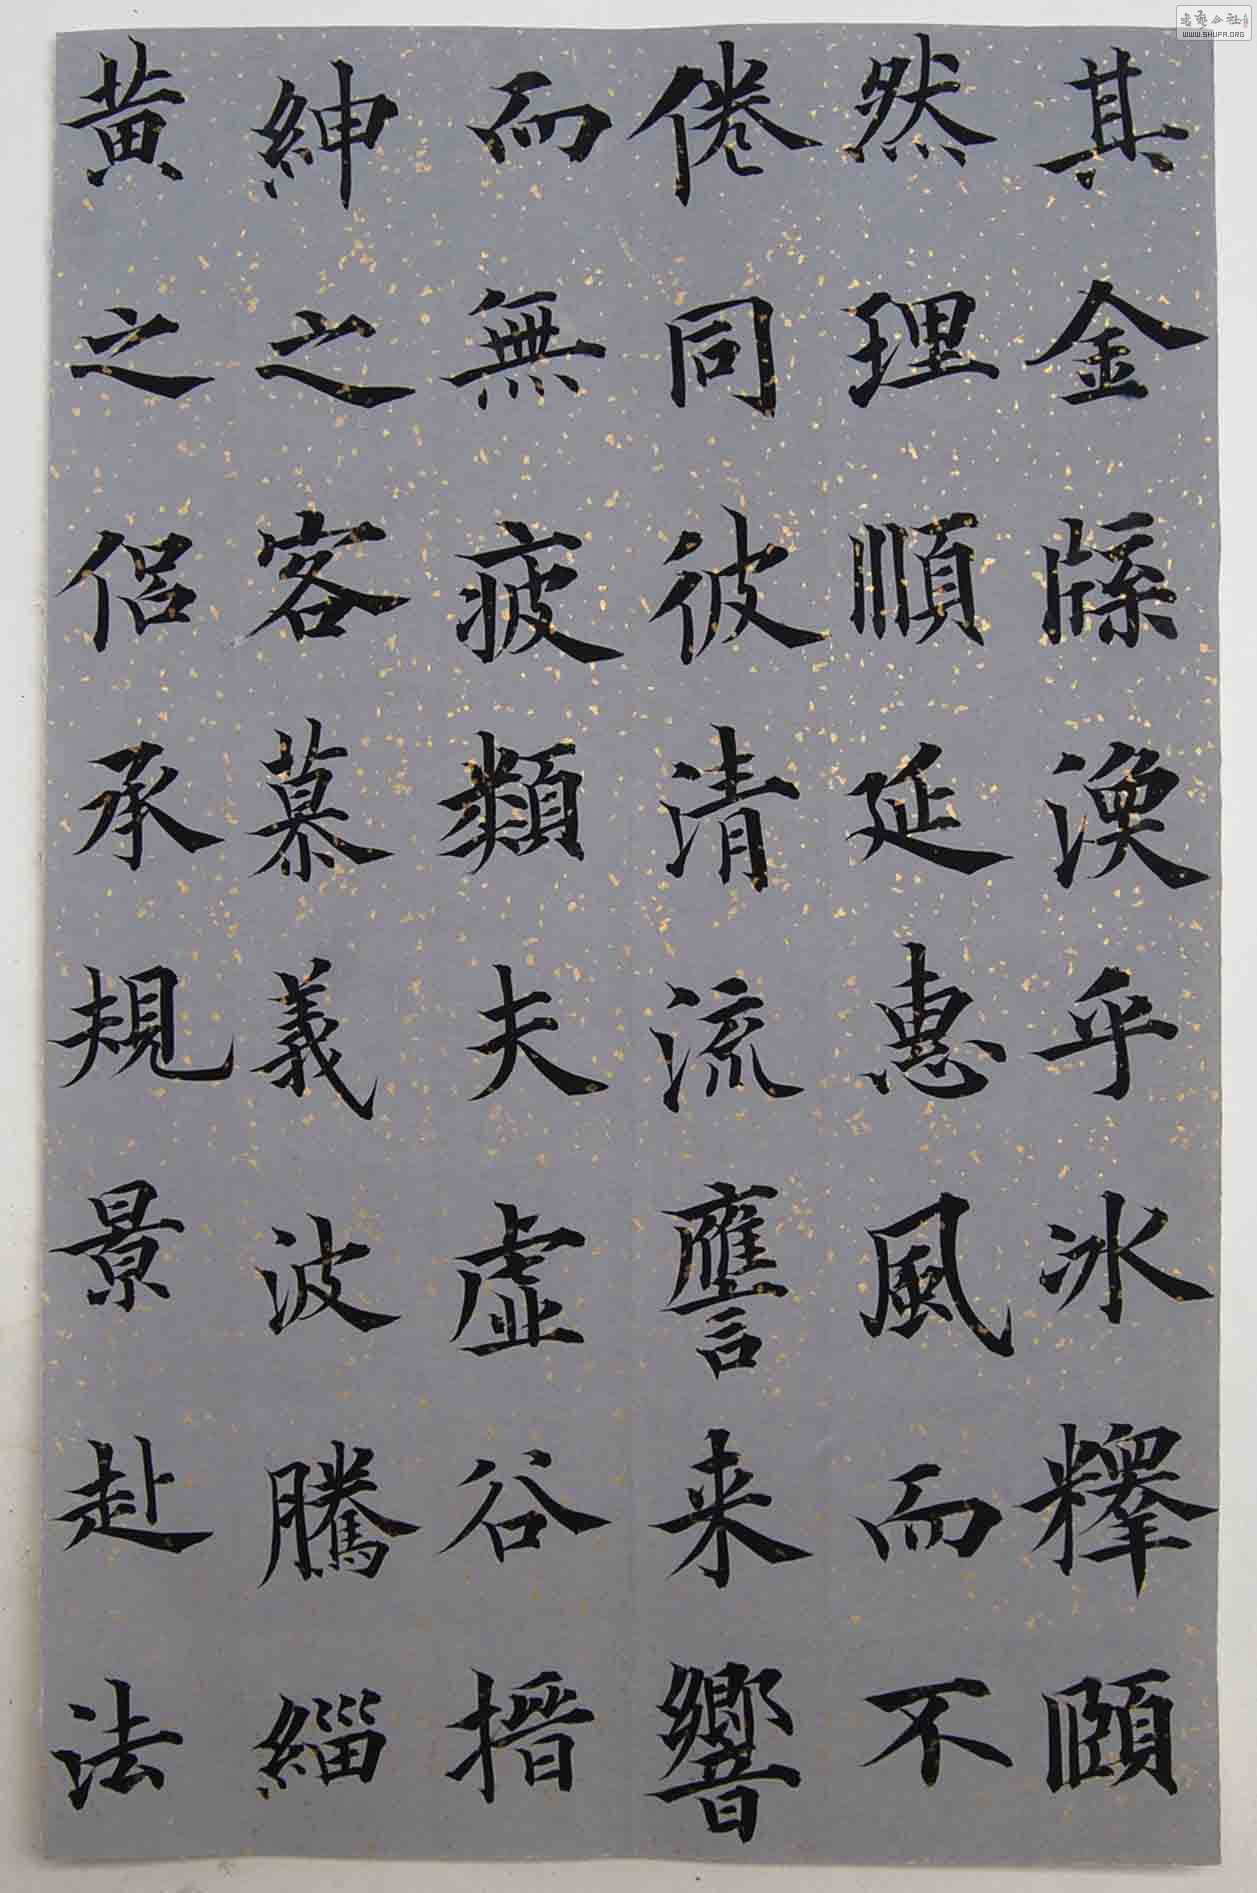 其金縢渙乎冰釋頤
然理順延惠風而不
倦同彼清流譍来響
而無疲類夫虛谷搢
紳之客慕義波騰緇
黄之侶承規景赴法
WWW.SHUFA.ORG